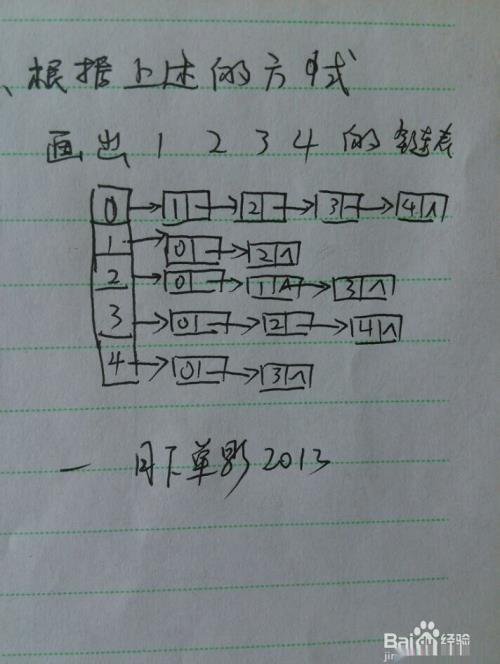 、根据上述的方式
画出 1 2 3 4 的链表
0 1 2 3 4 ∧
1 0 2 ∧
2 0 1 ∧ 3 ∧
3 0 2 4 ∧
4 0 3 ∧
— 月下单影2013
Bai 经验